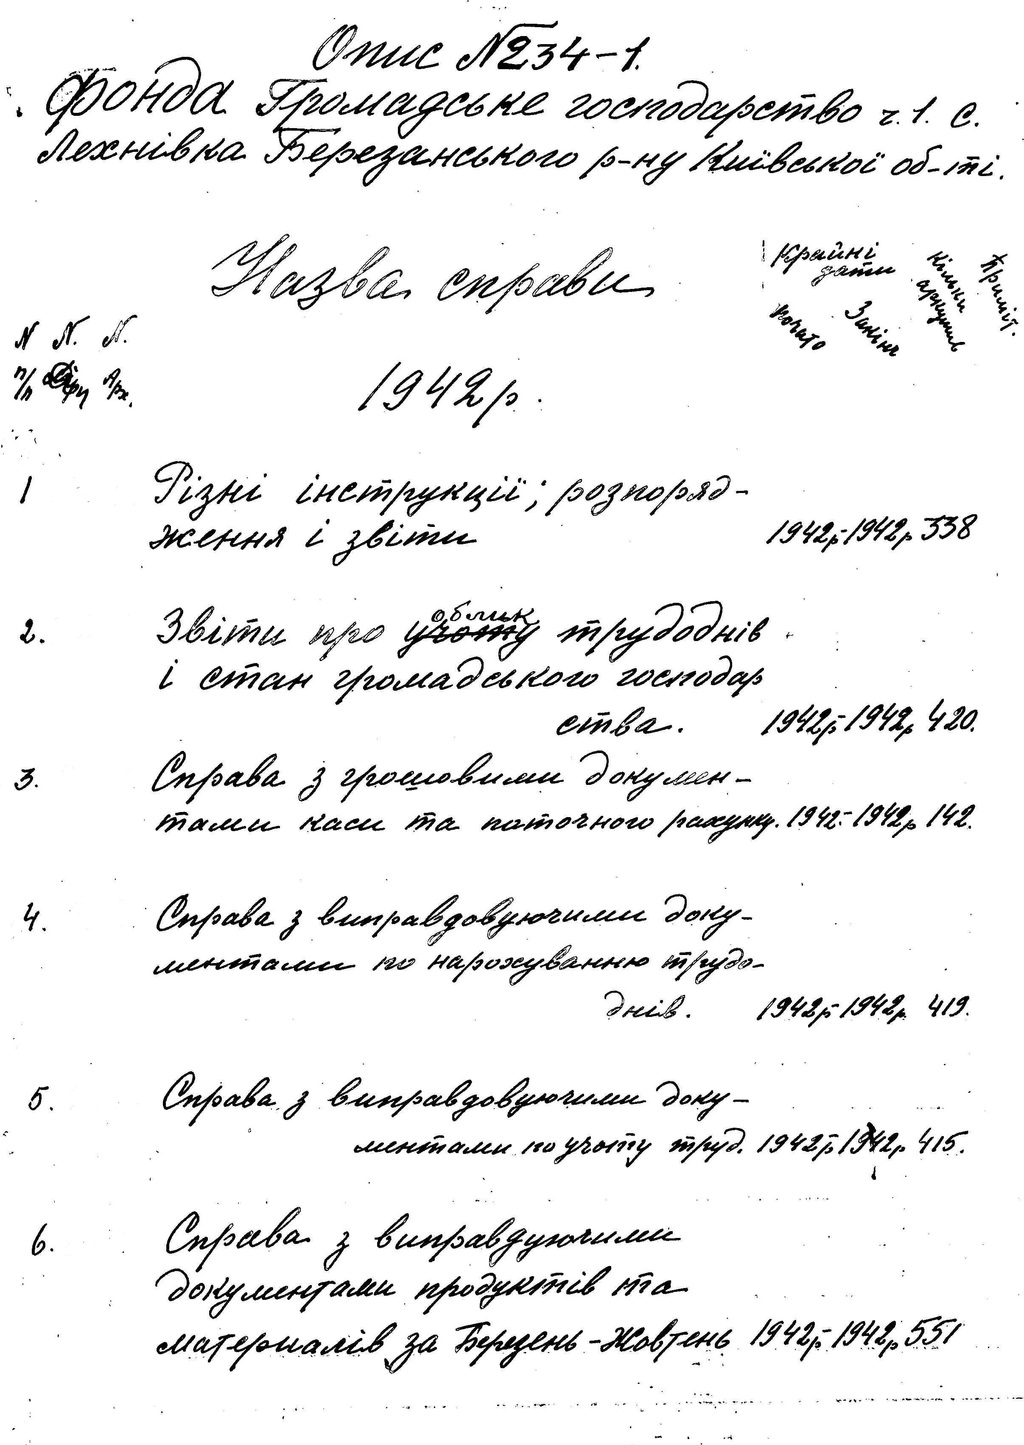 Опис №234-1.
фонда Громадське господарство ч.1. с.
Лехнівка Березанського р-ну Київської об-ті.
Назва справи
Крайні дати
почато
Закінч
Кільки аркушив
Приміт.
N N. N.
п/п Арх.
1942 р.
1 Різні інструкції; розпоряд-
ження і звіти 1942р-1942р 338
облик
2. Звіти про учоту трудоднів
і стан громадського господар
ства. 1942р-1942р 420.
3. Справа з грошовими докумен-
тами каси та поточного рахунку. 1942-1942р 142.
4. Справа з виправдовуючими доку-
ментами по нарохуванню трудо-
днів. 1942р-1942р. 419.
5. Справа з виправдовуючими доку-
ментами по учоту труд. 1942р-1942р 415.
6. Справа з виправдуючими
документами продуктів та
материалів за Березень-Жовтень 1942р-1942р 551